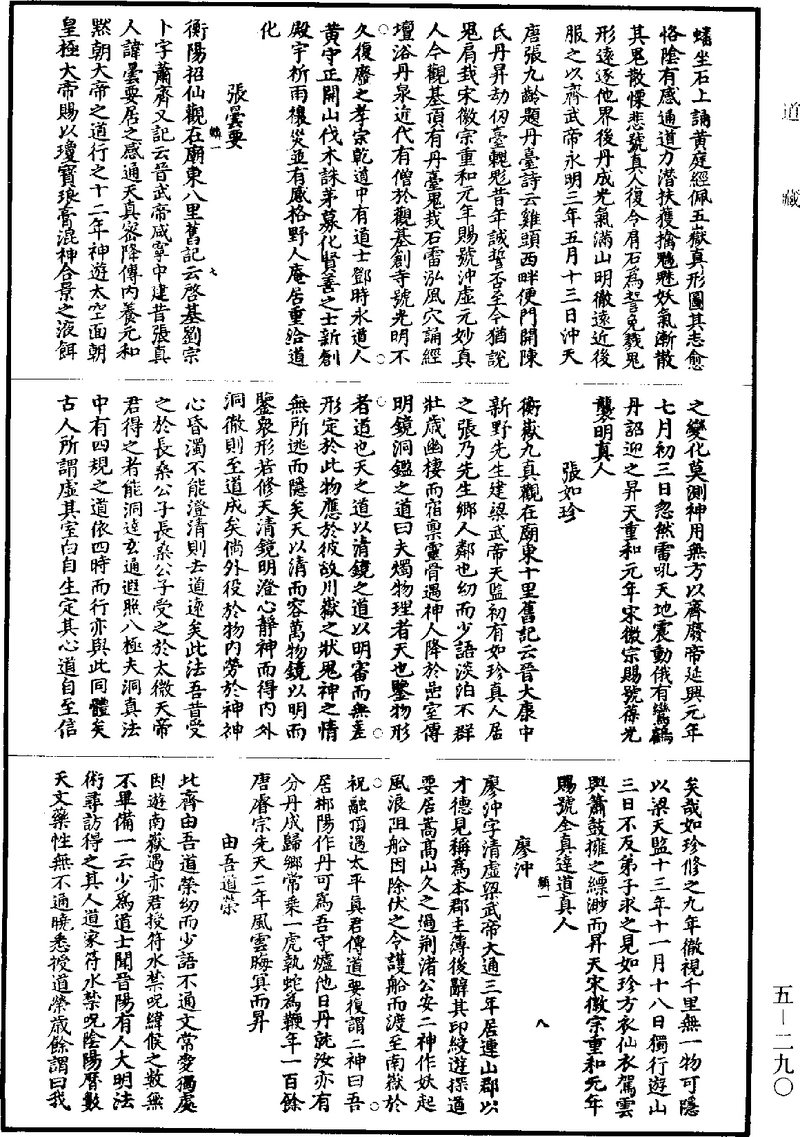 道藏
蟠坐石上誦黃庭經佩五嶽真形圖其志愈
恪陰有感通道力潛扶獲擒魑魅妖氣漸散
其鬼散慄悲號真人復令屑石為誓免戮鬼
形遠逐他界後丹成光氣滿山明徹遠近後
服之以齊武帝永明三年五月十三日沖天
唐張九齡題丹臺詩云雞頭西畔便門開陳
氏丹昇劫仞臺輥彪昔年誠誓否至今猶說
鬼肩哉宋徽宗重和元年賜號沖虛元妙真
人今觀基頂有丹臺鬼哉石雷泓風穴誦經
壇浴丹泉近代有僧於觀基創寺號光明不
久復廢之孝宗乾道中有道士鄧時永道人
黃守正開山伐木誅茅募化賢善之士新創
殿宇祈雨禳災並有感格野人庵居重給道
化
張曇要
衡陽招仙觀在廟東八里舊記云啓基劉宗
卜字蕭齊又記云晉武帝咸寧中建昔張真
人諱曇要居之感通天真密降傳內養元和
黙朝大帝之道行之十二年神遊太空面朝
皇極大帝賜以瓊寶琅膏混神合景之液餌
之變化莫測神用無方以齊廢帝延興元年
七月初三日忽然雷吼天地震動俄有鸞鶴
丹詔迎之昇天重和元年宋徽宗賜號葆光
襲明真人
張如珍
衡嶽九真觀在廟東十里舊記云晉大康中
新野先生建梁武帝天監初有如珍真人居
之張乃先生鄉人鄰也幼而少語淡泊不群
壯歲幽棲而宿稟靈骨遇神人降於嵓室傳
明鏡洞鑑之道曰夫燭物理者天也鑒物形
者道也天之道以清鏡之道以明審而無差
形定於此物應於彼故川嶽之狀鬼神之情
無所逃而隱矣天以清而容萬物鏡以明而
鑒衆形若修天清鏡明澄心靜神而得內外
洞徹則至道成矣倘外役於物內勞於神神
心昏濁不能澄清則去道遠矣此法吾昔受
之於長桑公子長桑公子受之於太微天帝
君得之者能洞達玄通遐照八極夫洞真法
中有四規之道依四時而行亦與此同體矣
古人所謂虛其室白自生定其心道自至信
矣哉如珍修之九年徹視千里無一物可隱
以梁天監十三年十一月十八日獨行遊山
三日不反弟子求之見如珍方衣仙衣駕雲
輿簫鼓擁之縹渺而昇天宋徽宗重和元年
賜號全真達道真人
廖沖
廖沖字清虛梁武帝大通三年居連山郡以
才德見稱為本郡主簿後辭其印綬遊採道
要居嵩高山久之過荆渚公安二神作妖起
風浪阻船因除伏之令護船而渡至南嶽於
祝融頂遇太平真君傳道要復謂二神曰吾
居郴陽作丹可為吾守爐他日丹就汝亦有
分丹成歸鄉常乘一虎執蛇為鞭年一百餘
唐睿宗先天二年風雲晦冥而昇
由吾道榮
北齊由吾道榮幼而少語不通文常愛獨處
因遊南嶽遇亦君授符水禁呪緯候之數無
不畢備一云少為道士聞晉陽有人大明法
術尋訪得之其人道家符水禁呪陰陽曆數
天文藥性無不通曉悉授道榮歲餘謂曰我
五－二九〇